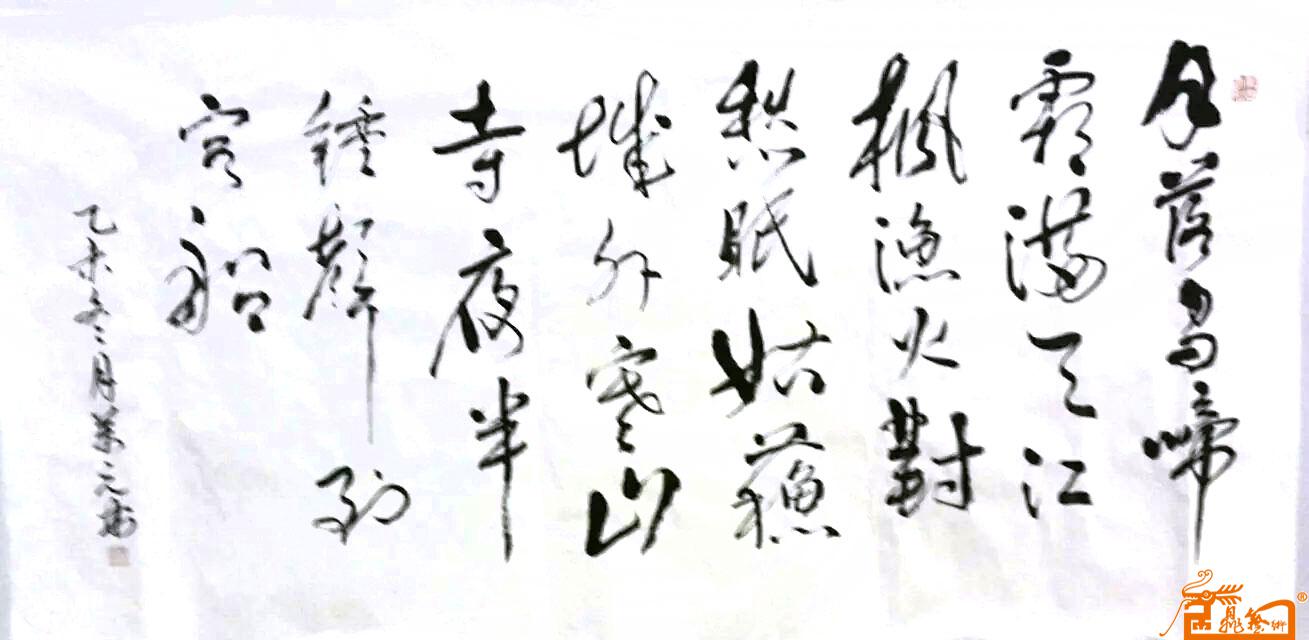 月落烏啼
霜滿天江
楓漁火對
愁眠姑蘇
城外寒山
寺夜半
鐘聲到
客船
乙未冬月